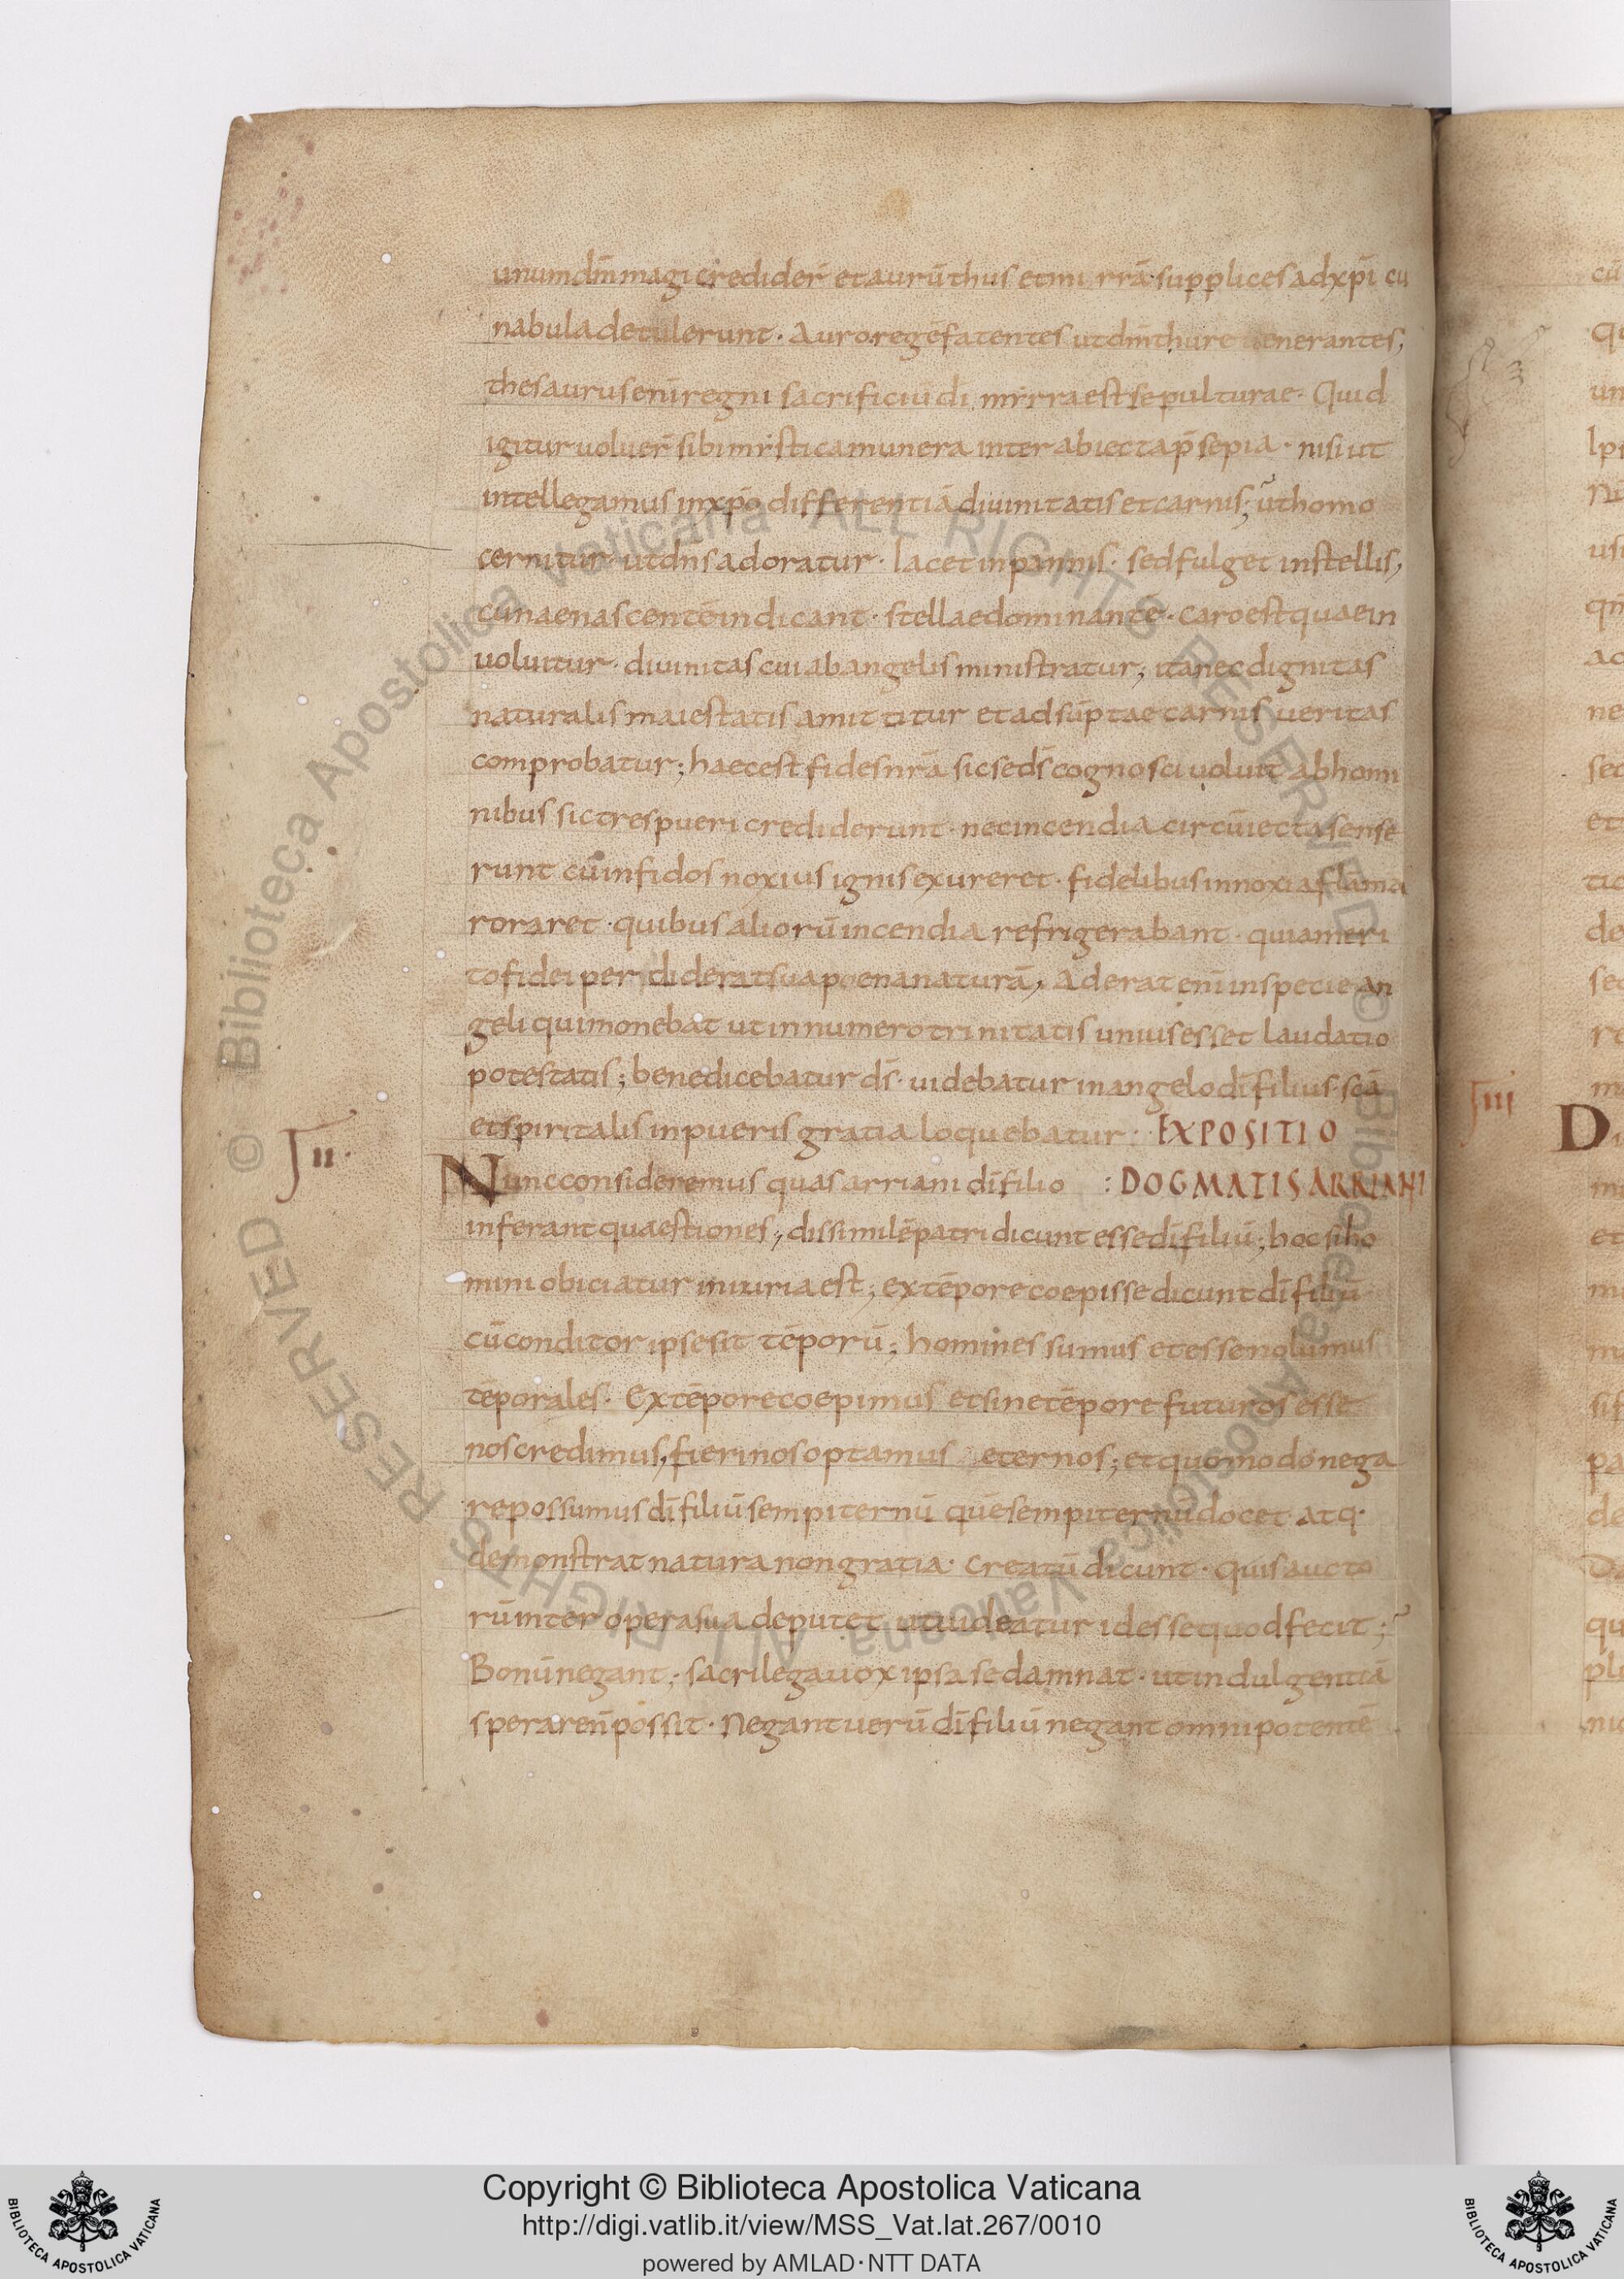 unum dn̄m magi credider̄ et aurū thus et mirrā supplices ad xp̄i cu
nabula detulerunt · Auro regē fatentes ut dn̄m thure uenerantes;
thesaurus enī regni sacrificiū dī mẏrra est sepulturae · Quid
igitur uoluer̄ sibi mẏstica munera inter abiecta p̄sepia · nisi ut
intellegamus in xp̄o differentiā diuinitatis et carnis; ut homo
cernitur · ut dn̄s adoratur · Iacet in pannis · sed fulget in stellis,
cunae nascentē indicant · stellae dominantē · caro est quae in
uoluitur · diuinitas cui ab angelis ministratur; ita nec dignitas
naturalis maiestatis amittitur et adsūptae carnis ueritas
comprobatur; haec est fides nr̄a sic se ds̄ cognosci uoluit ab homi
nibus sic tres pueri crediderunt · nec incendia circūiecta sense
runt cū infidos noxius ignis exureret · fidelibus innoxia flama
roraret · quibus aliorū incendia refrigerabant · quia meri
to fidei perdiderat sua poena naturā; Aderat enī in specie an
geli qui monebat ut in numero trinitatis unius esset laudatio
potestatis; benedicebatur ds̄ · uidebatur in angelo dī filius · scā
et spiritalis in pueris gratia loquebatur · EXPOSITIO
II · Nunc consideremus quas arriani dī filio : DOGMATIS ARRIANI
inferant quaestiones; dissimilē patri dicunt esse dī filiū; hoc si ho
mini obiciatur iniuria est; ex tēpore coepisse dicunt dī filiū
cū conditor ipse sit tēporū; homines sumus et esse nolumus
tēporales · Ex tēpore coepimus et sine tēpore futuros esse
nos credimus, fieri nos optamus eternos; et quomodo nega
re possumus dī filiū sempiternū quē sempiternū docet atq·
demonstrat natura non gratia · Creatū dicunt · quis aucto
rū inter opera sua deputet ut uideatur id esse quod fecit;
Bonū negant; sacrilega uox ipsa se damnat · ut indulgentiā
sperare n̄ possit · Negant uerū dī filiū negant omnipotentē
III
D
Copyright © Biblioteca Apostolica Vaticana
http://digi.vatlib.it/view/MSS_Vat.lat.267/0010
powered by AMLAD · NTT DATA
BIBLIOTECA APOSTOLICA VATICANA
BIBLIOTECA APOSTOLICA VATICANA
© Biblioteca Apostolica Vaticana ALL RIGHTS RESERVED
© Biblioteca Apostolica Vaticana ALL RIGHTS RESERVED